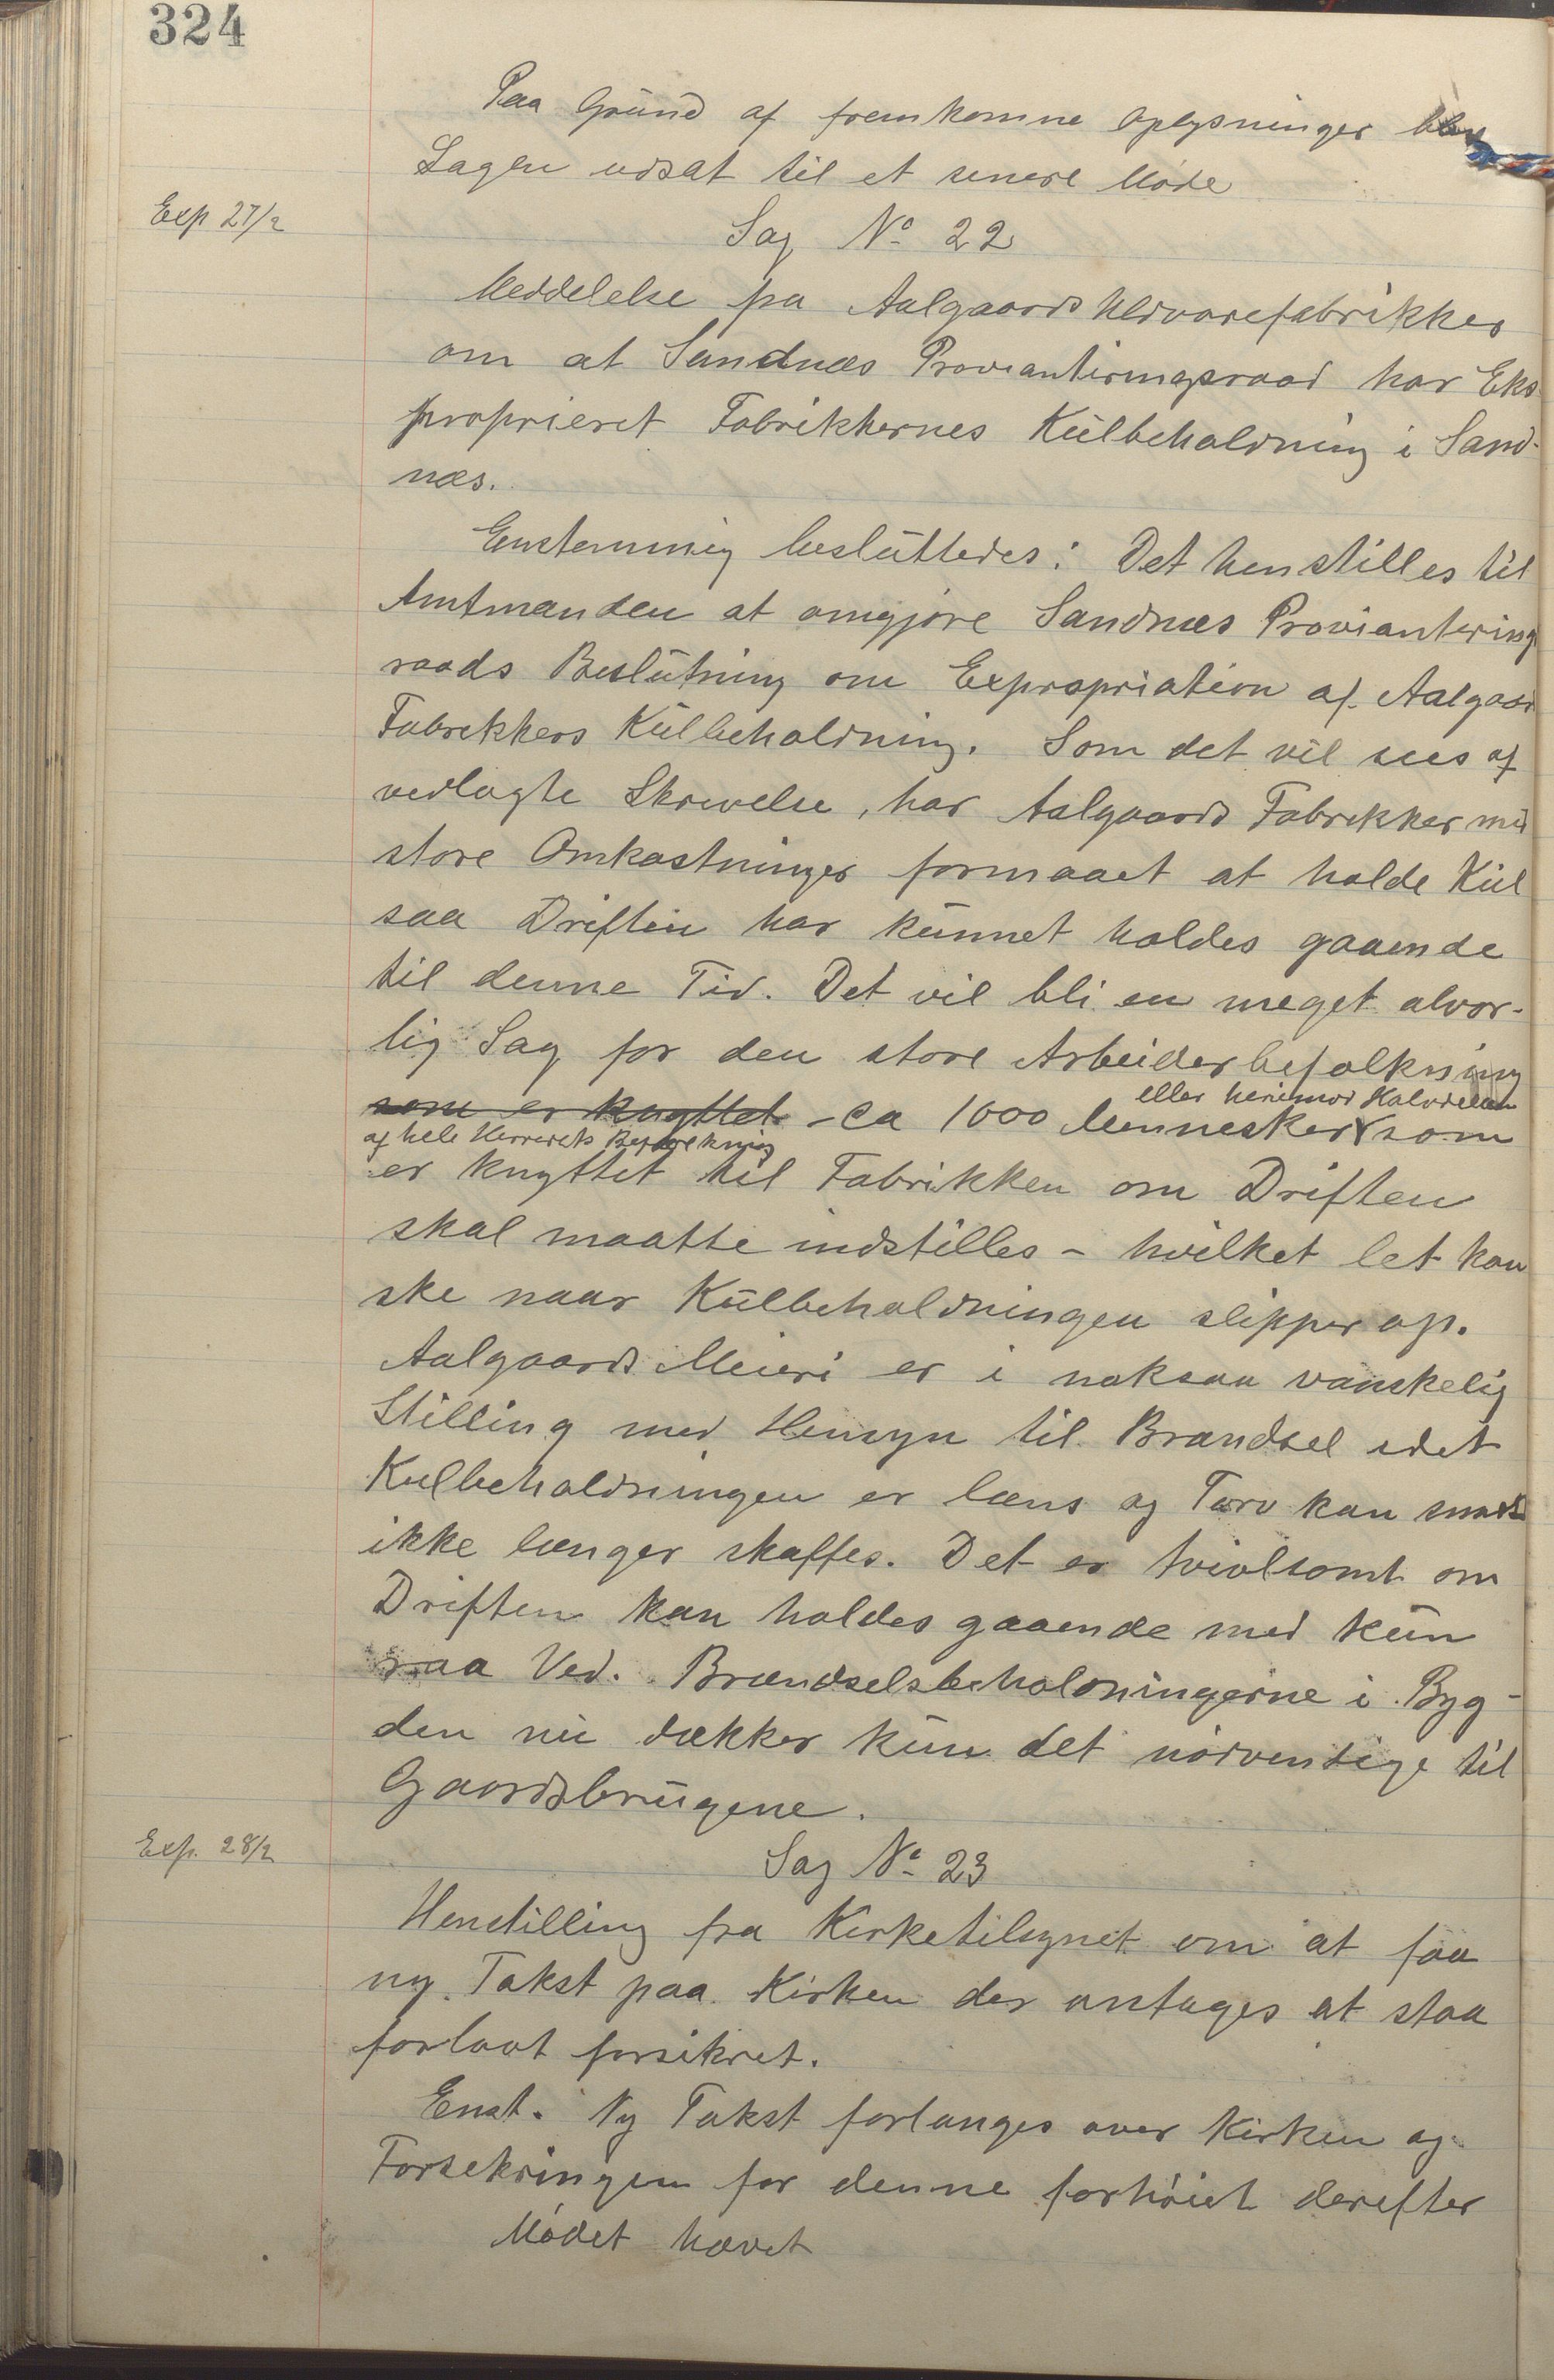 324
Paa Grund af fremkomne Oplysninger blev
Sagen udsat til et senere Møde
Exp 27/2
Sag No 22
Meddelelse fra Aalgaards Uldvarefabrikker
om at Sandnæs Provianteringsraad har Eks-
proprieret Fabrikkernes Kulbeholdning i Sand-
næs.
Enstemmig besluttedes: Det henstilles til
Amtmanden at omgjøre Sandnæs Provianterings
raads Beslutning om Expropriation af Aalgaard
Fabrikkers Kulbeholdning. Som det vil sees af
vedlagte Skrivelse, har Aalgaards Fabrikker med
store Omkostninger formaaet at holde Kul
saa Driften har kunnet holdes gaaende
til denne Tid. Det vil bli en meget alvor-
lig Sag for den store Arbeiderbefolkning
eller henimod Halvdelen
som er knyttet - ca 1000 Mennesker som
af hele Herredets Befolkning
er knyttet til Fabrikken om Driften
skal maatte indstilles - hvilket let kan
ske naar Kulbeholdningen slipper op.
Aalgaards Meieri er i noksaa vanskelig
Stilling med Hensyn til Brændsel idet
Kulbeholdningen er læns og Torv kan snart
ikke længer skaffes. Det er tvivlsomt om
Driften kan holdes gaaende med kun
raa Ved. Brændselsbeholdningerne i Byg-
den nu dækker kun det nødvendige til
Gaardsbrugene.
Exp. 28/2
Sag No 23
Henstilling fra Kirketilsynet om at faa
ny Takst paa Kirken der antages at staa
forlavt forsikret.
Enst. Ny Takst forlanges over Kirken og
Forsekringen for denne forhøiet derefter
Mødet hævet